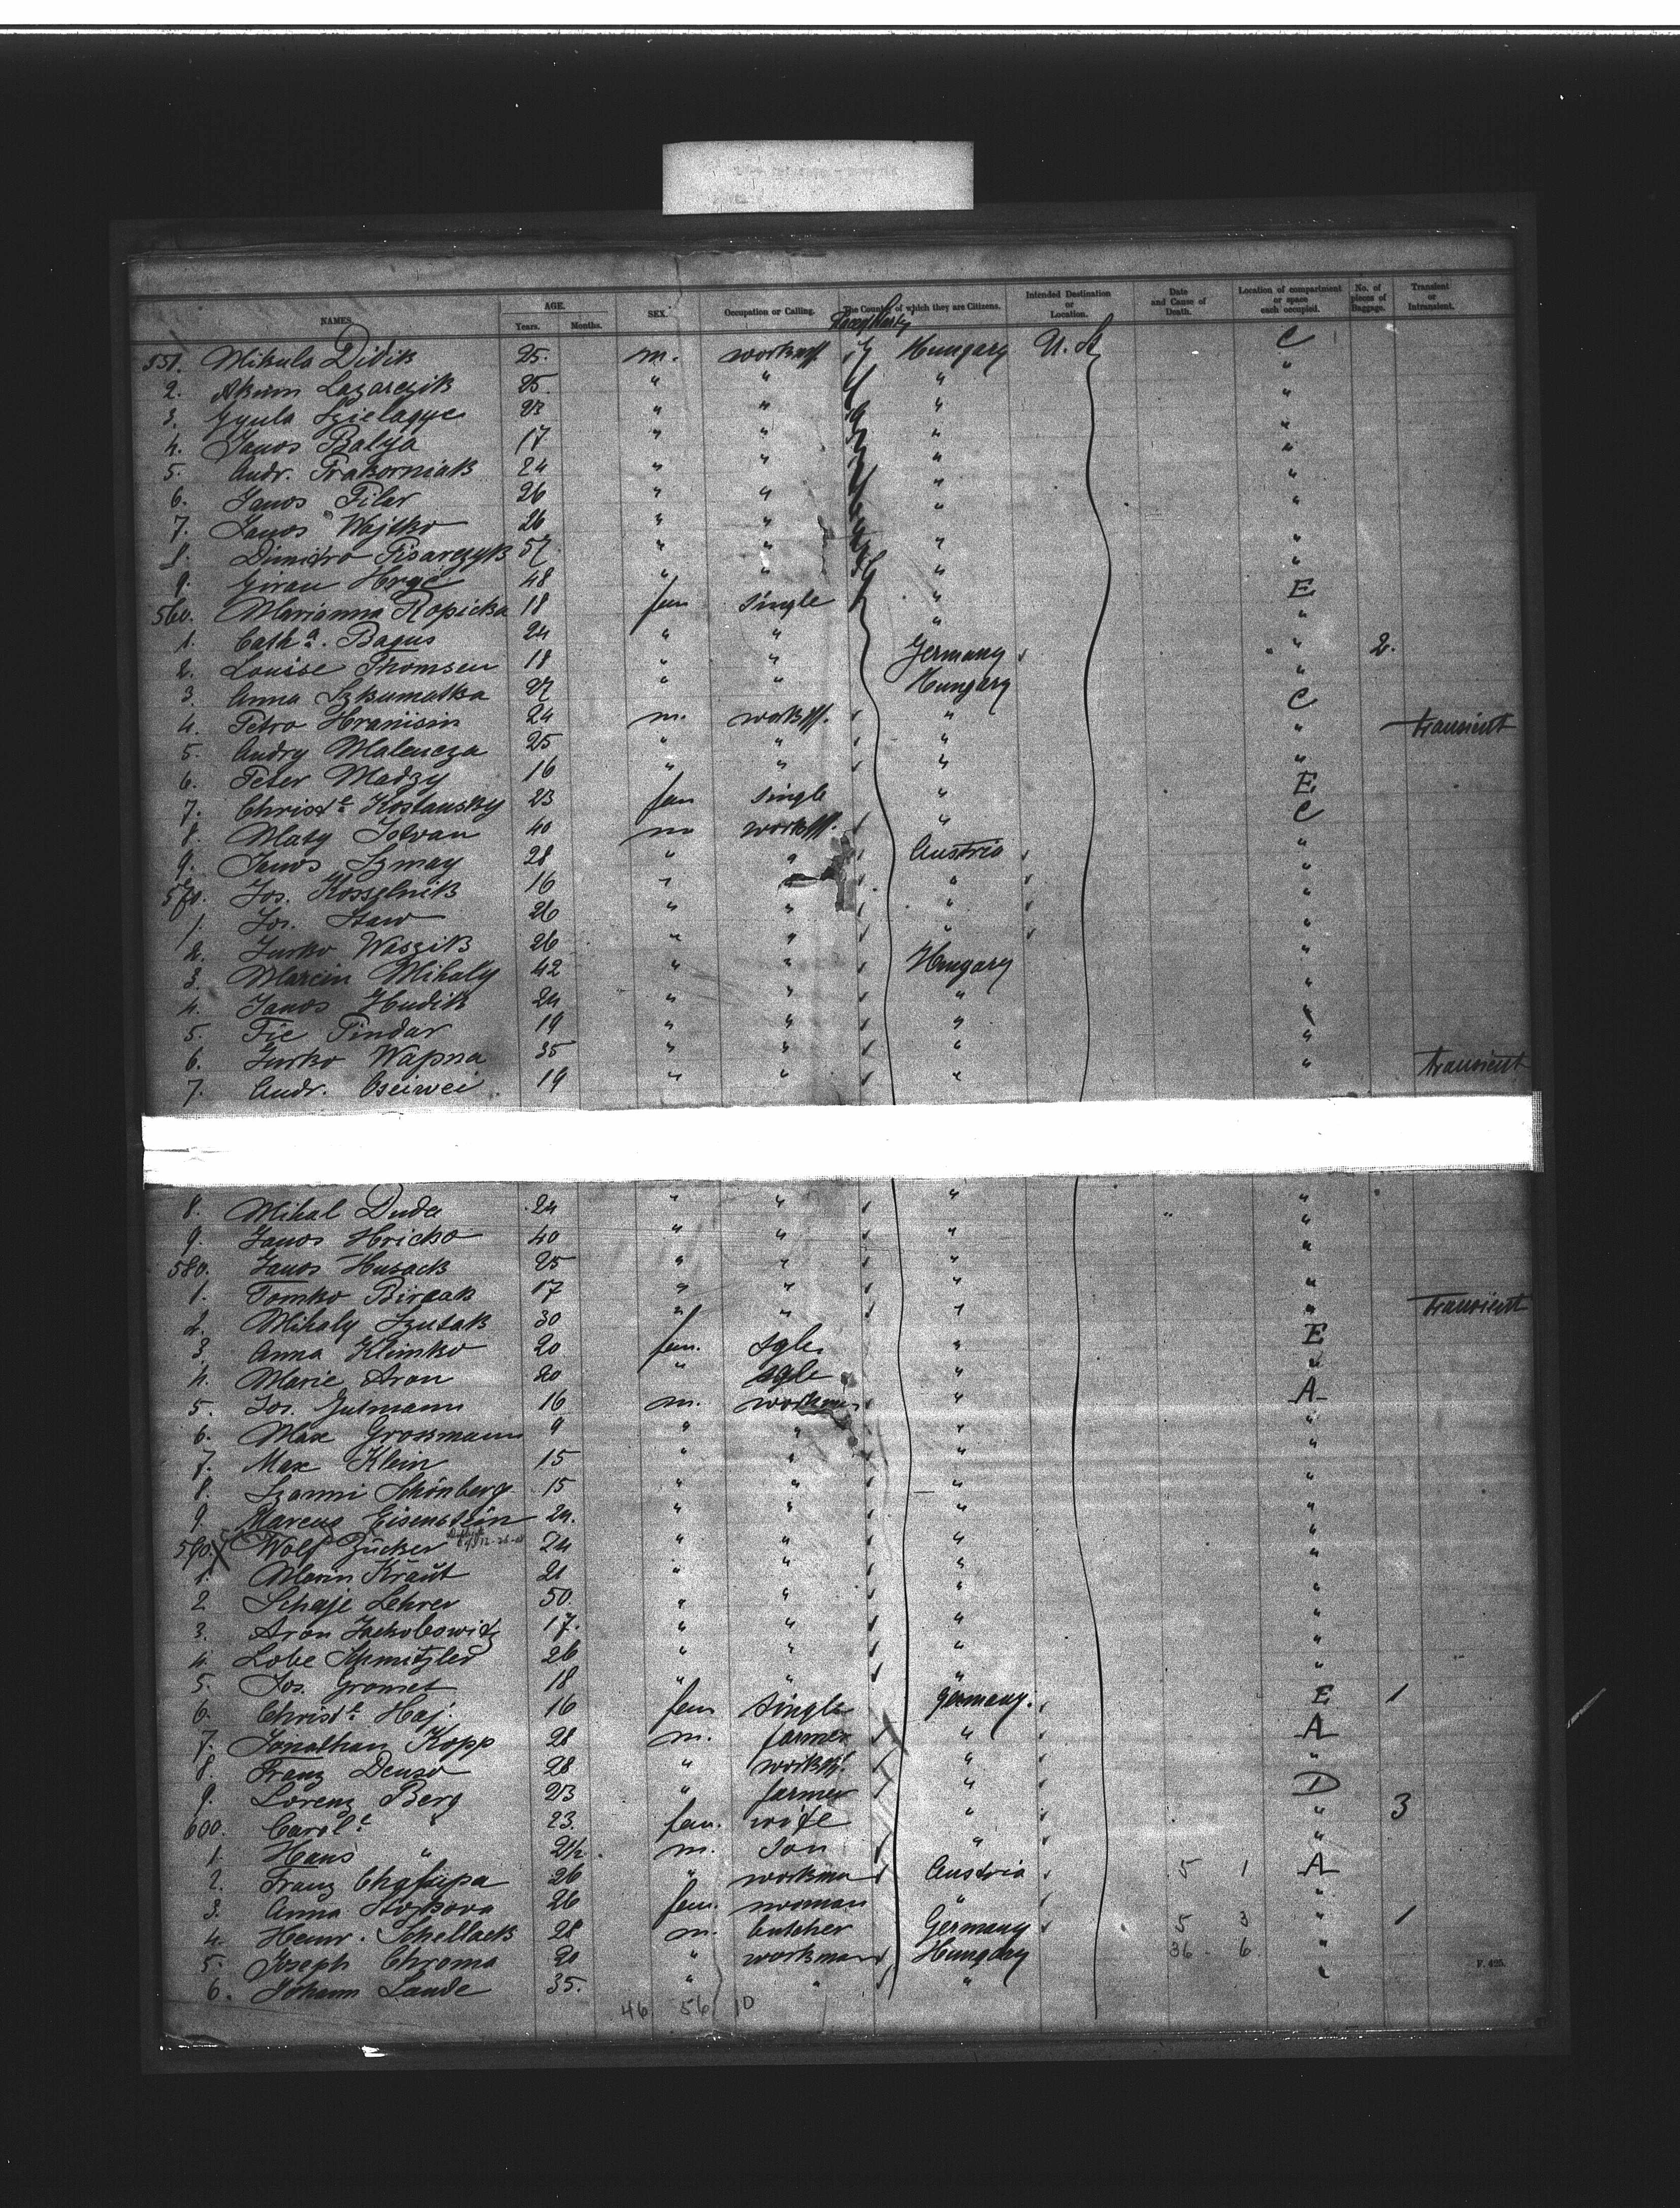 NAMES. AGE. Years. Months. SEX. Occupation or Calling. The Country of which they are Citizens. Intended Destination or Location. Date and Cause of Death. Location of compartment or space each occupied. No. of pieces of Baggage. Transient or Intransient.
551. Mikula Didik 25. m. Hungary U. St. C
2. Akim Lazarczik 25. " " " "
3. Gyula 23 " " " "
4. Janos Balya 17 " " " "
5. Andr. Prakorniak 24 " " " "
6. Janos Pilar 26 " " " "
7. Janos Wajtko 26 " " " "
8. Dimitro Pisarczyk 57 " " " "
9. Giran 48 " " " "
560. Marianna Kopicka 18 fem single " E
1. Cath.a Bagus 24 " " " "
2. Louise Thomsen 18 " " Germany " 2.
3. Anna Szkumatka 27 " " Hungary "
4. Petro Hranism 24 m. " C
5. Andry Malencza 25 " " " " transient
6. Peter Madzy 16 " " " "
7. Christ.e Kostansky 23 fem single " E
8. Maty Istvan 40 m " C
9. Janos Szmay 28 " " Austria "
570. Jos. Kosszelnik 16 " " " "
1. Jos. Staw 26 " " " "
2. Jurko Waszik 26 " " " "
3. Marcin Mihaly 42 " " Hungary "
4. Janos Hudik 24 " " " "
5. Fie Pindar 19 " " " "
6. Jurko Wapna 35 " " " "
7. Andr. 19 " " " " transient
8. Mihal Duda 24 " " " "
9. Janos Hricko 40 " " " "
580. Janos Husack 25 " " " "
1. Tomko Bircak 17 " " " "
2. Mihaly Szutak 30 " " " " transient
3. Anna Klimko 20 fem. sgle. " E
4. Marie Aron 20 " sgle " "
5. Jos. Gutmann 16 m. workman " A
6. Max Grossmann 9 " " " "
7. Max Klein 15 " " " "
8. Szanni Schönberg 15 " " " "
9. Marcus Eisenstein 24. " " " "
590. Wolf Zucker 24 " " " "
1. Marin Kraut 21 " " " "
2 Schaje Lehrer 50. " " " "
3. Aron Jackobowitz 17. " " " "
4. Lobe Schmitzler 26 " " " "
5. Jos. Gromet 18 " " " "
6. Christ.e Haj. 16 fem single Germany. E 1
7. Jonathan Kopp 28 m. farmer " A
8. Franz Denso 28 " " "
9. Lorenz Berg 23 " farmer " D
600. Carol.e " 23. fem. wife " " 3
1. Hans " 2½. m. son " "
2. Franz 26 " workman Austria 5 1 A
3. Anna 26 fem. woman " "
4. Heinr. Schellack 28 m. butcher Germany 5 3 " 1
5. Joseph Chroma 20 " workman Hungary 36 - 6 "
6. Johann Lande 35. " " " "
46 56 10
F. 425.